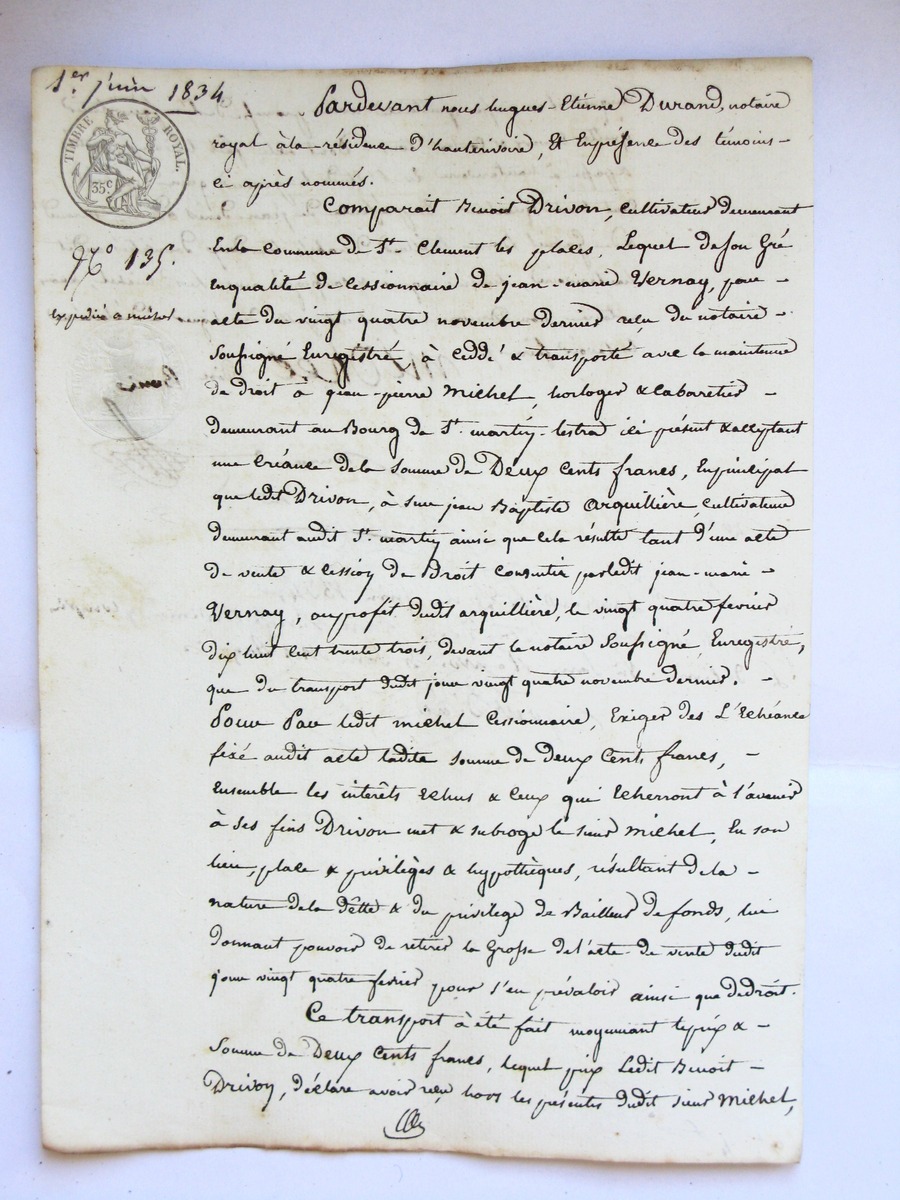 1.er juin 1834
TIMBRE ROYAL.
35.c
N.o 135.
expédié a michel
Pardevant nous hugues-Etienne Durand, notaire
royal à la résidence d'hauterivoire, Et Enprésence des témoins
ci après nommés.
Comparait Benoit Drivon, cultivateur demeurant
Enla Commune de S.t Clement les places, Lequel deson Gré
Enqualité de Cessionnaire de jean-marie Vernay, par
acte du vingt quatre novembre dernier reçu du notaire
Soussigné Enregistré, à Ceddé & transporté avec la maintenue
de droit à jean-pierre Michel, horloger & Cabaretier
demeurant au Bourg de S.t martin-lestra ici présent & acceptant
une Créance dela Somme de Deux Cents francs, Enprincipal
que ledit Drivon, à sur jean Baptiste Arquillière, Cultivateur
demeurant audit S.t martin ainsi que cela résulte tant d'une acte
de vente & Cession de Droit Consentie parledit jean-marie
Vernay, auprofit dudit arquillière, le vingt quatre fevrier
dix huit cent trente trois, devant le notaire Soussigné, Enregistré,
que du transport dudit jour vingt quatre novembre dernier.
Pour Par ledit michel Cessionnaire, Exiger des L'Echéance
fixé audit acte ladite Somme de deux Cents francs,
Ensemble les interêts Echus & Ceux qui Echerront à l'avenir
à Ses fins Drivon met & subroge le sieur Michel, En son
lieu, place & privilèges & hypothèques, résultant dela
nature dela dette & du privilège de Bailleur defonds, lui
donnant pouvoir de retirer la Grosse de l'acte de vente dudit
jour vingt quatre fevrier pour s'en prévaloir ainsi que dedroit.
Ce transport à été fait moyennant leprix &
Somme de Deux Cents francs, lequel prix Ledit Benoit
Drivon, déclare avoir reçu hors les présentes dudit sieur Michel,